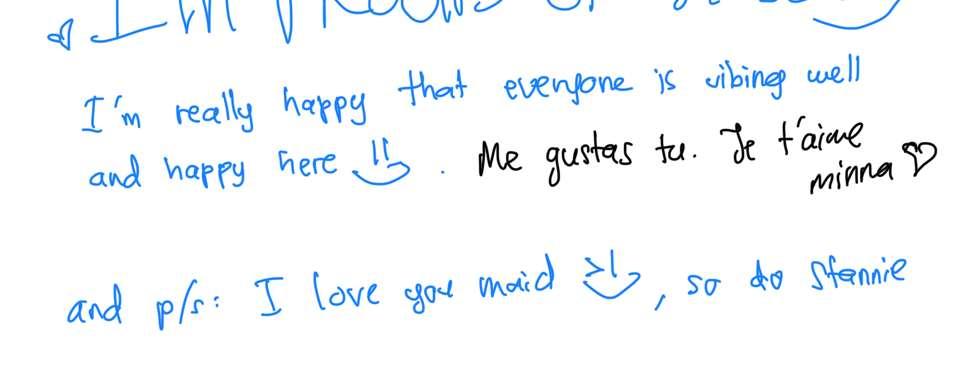 I'm
I'm really happy that everyone is vibing well
and happy here . Me gustas tu. Je t'aime
minna
and p/s: I love you maid , so do Stannie